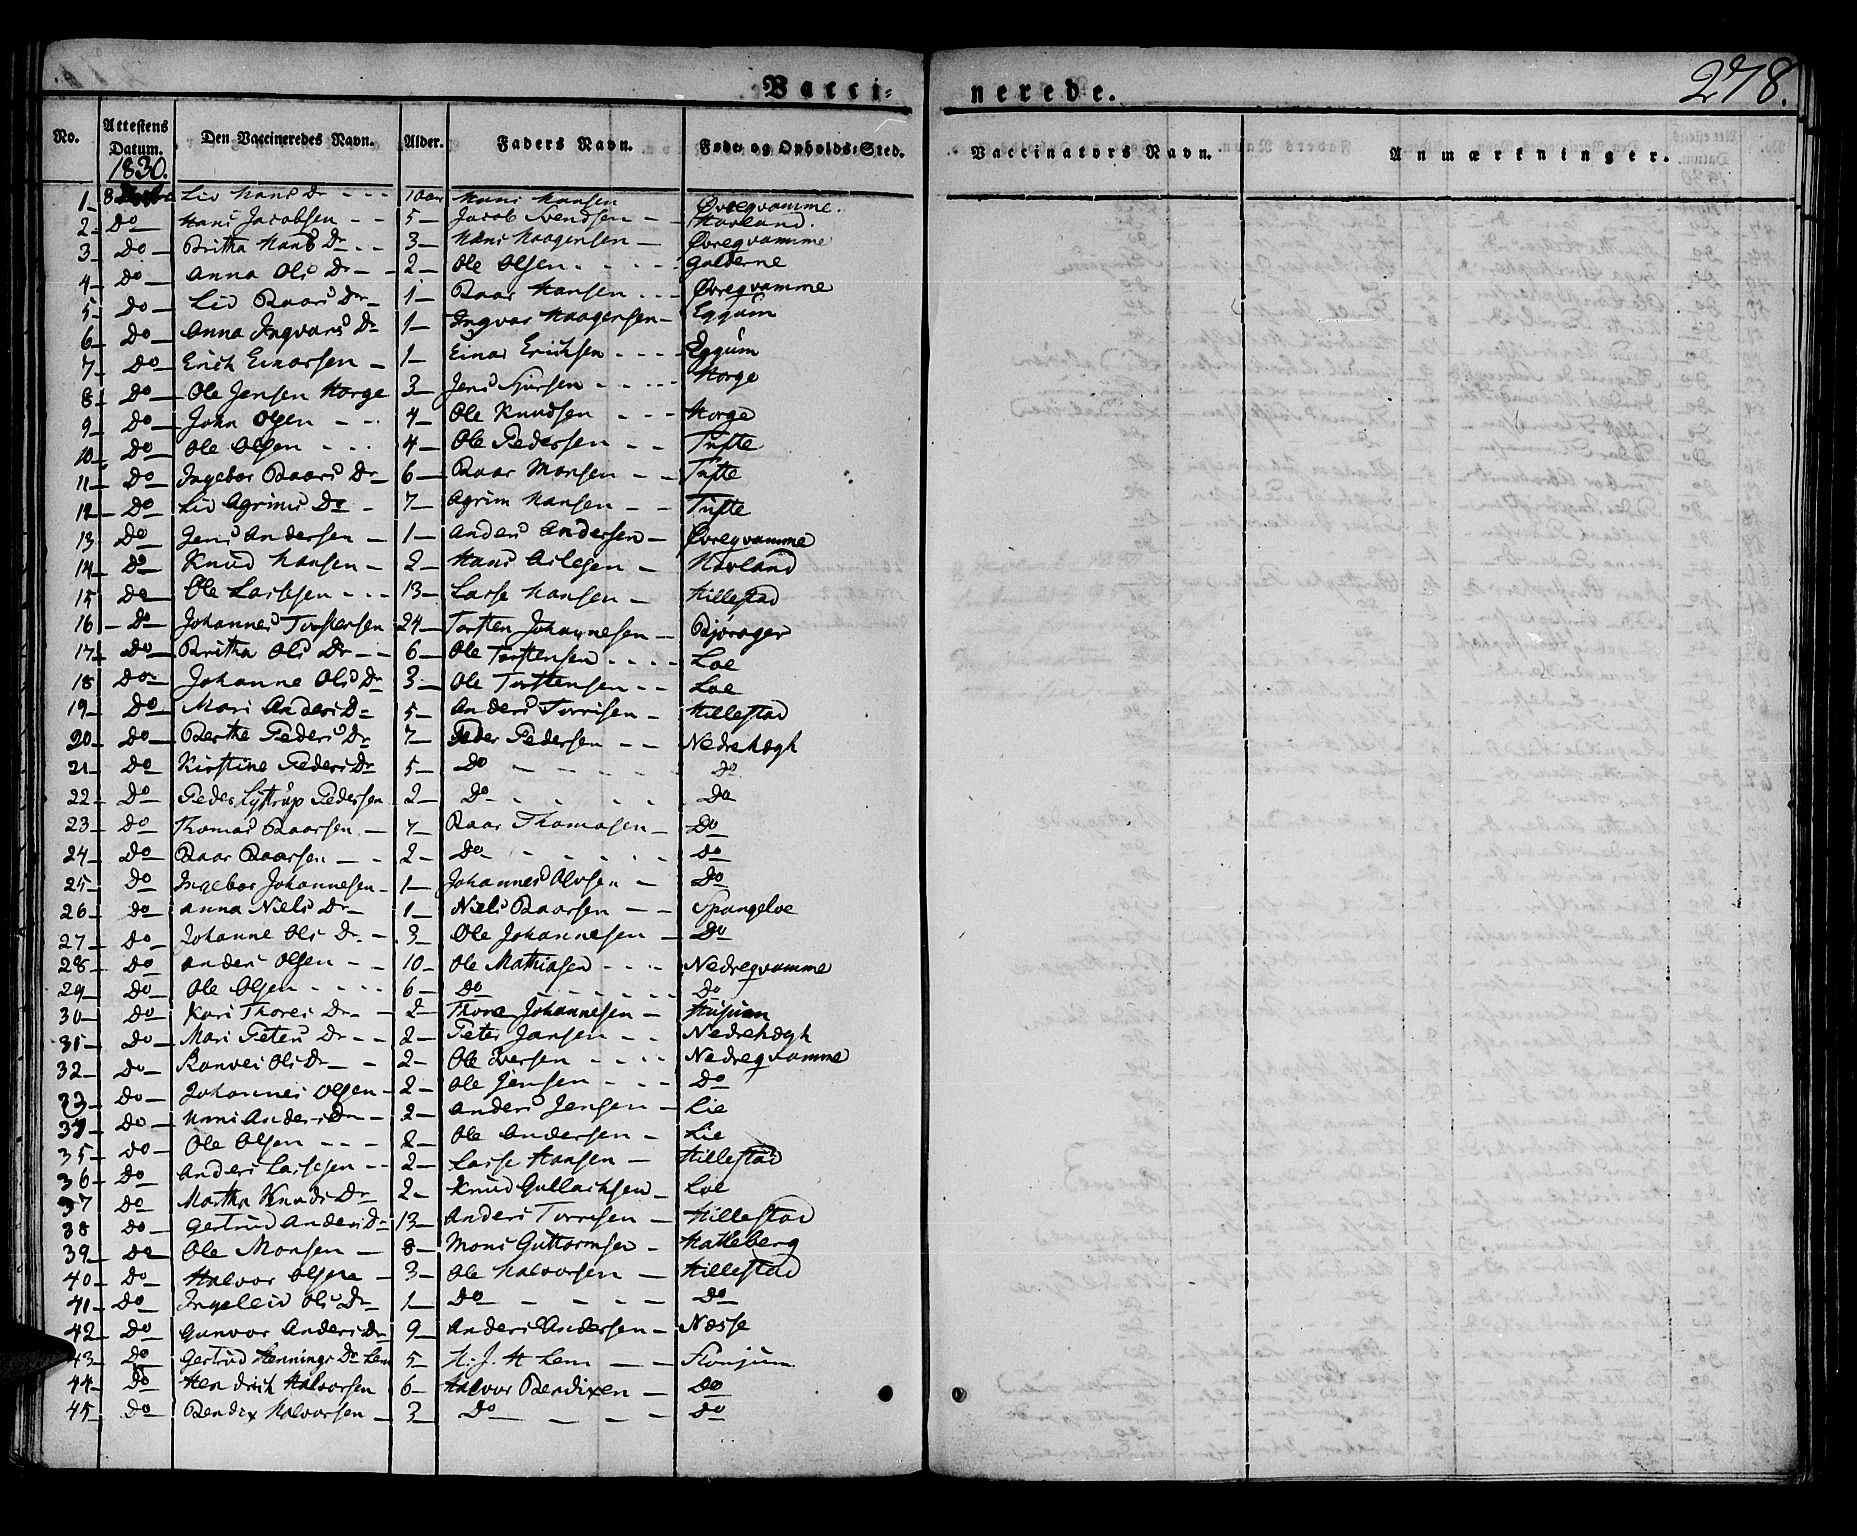 Vacci- nerede. 278.
No. Attestens Datum. Den Vaccineredes Navn. Alder. Faders Navn. Føde- og Opholds-Sted. Vaccinators Navn. Anmærkninger.
1830.
1 8 Liv Hans Dr 10 aar Hans Hansen Øvreqvamme.
2 Do Hans Jacobsen 5 Jacob Svendsen Hovland.
3 Do Britha Hans Dr 3 Hans Haagensen Øvreqvamme
4 Do Anna Ols Dr 2 Ole Olsen Galderne
5 Do Liv Baars Dr 1 Baar Hansen Øvreqvamme
6 Do Anna Ingvars Dr 1 Ingvar Haagensen Eggum
7 Do Erich Einarsen 1 Einar Erichsen Eggum
8 Do Ole Jensen Horge 3 Jens Horge
9 Do John Olsen 4 Ole Knudsen Horge
10 Do Ole Olsen 4 Ole Pedersen Tufte
11 Do Ingebor Baars Dr 6 Baar Monsen Tufte
12 Do Liv Agrims Dr 7 Agrim Hansen Tufte
13 Do Jens Andersen 1 Anders Andersen Øvreqvamme
14 Do Knud Hansen 2 Hans Hovland
15 Do Ole Lassesen 13 Lasse Hansen Hillestad
16 Do Johannes Torstensen 24 Torsten Johannesen
17 Do Britha Ols Dr 6 Ole Torstensen Loe
18 Do Johanne Ols Dr 3 Ole Torstensen Loe
19 Do Mari Anders Dr 5 Anders Torrisen Hillestad
20 Do Berthe Peders Dr 7 Peder Pedersen Nedrehægh
21 Do Kirstine Peders Dr 5 Do Do
22 Do Peder Lystrup Pedersen 2 Do Do
23 Do Thomas Baarsen 7 Baar Thomasen Do
24 Do Baar Baarsen 2 Do Do
25 Do Ingebor Johannesen 1 Johannes Do
26 Do Anna Niels Dr 1 Niels Baarsen Spangeloe
27 Do Johanne Ols Dr 3 Ole Johannesen Do
28 Do Anders Olsen 10 Ole Mathiasen Nedreqvamme
29 Do Ole Olsen 6 Do Do
30 Do Kari Thores Dr 2 Thore Johannesen Husum
31 Do Mari Peters Dr 2 Peter Jansen Nedrehægh
32 Do Ranvei Ols Dr 2 Ole Iversen Nedreqvamme
33 Do Johannes Olsen 2 Ole Jensen Do
34 Do Anders Dr 2 Anders Jensen Lie
35 Do Ole Olsen 2 Ole Andersen Lie
36 Do Anders Lassesen 2 Lasse Hansen Hillestad
37 Do Martha Knuds Dr 2 Knud Gullachsen Loe
38 Do Gertrud Anders Dr 13 Anders Torrisen Hillestad
39 Do Ole Monsen 8 Mons Guttormsen Hatleberg
40 Do Halvor Olsen 3 Ole Halvorsen Hillestad
41 Do Ingeleiv Ols Dr 1 Do Do
42 Do Gunvor Anders Dr 9 Anders Andersen Næsse
43 Do Gertrud Hennings Dr Lem 5 H. J. H. Lem Flonjum
44 Do Hendrich Halvorsen 6 Halvor Bendixen Do
45 Do Bendix Halvorsen 3 Do Do